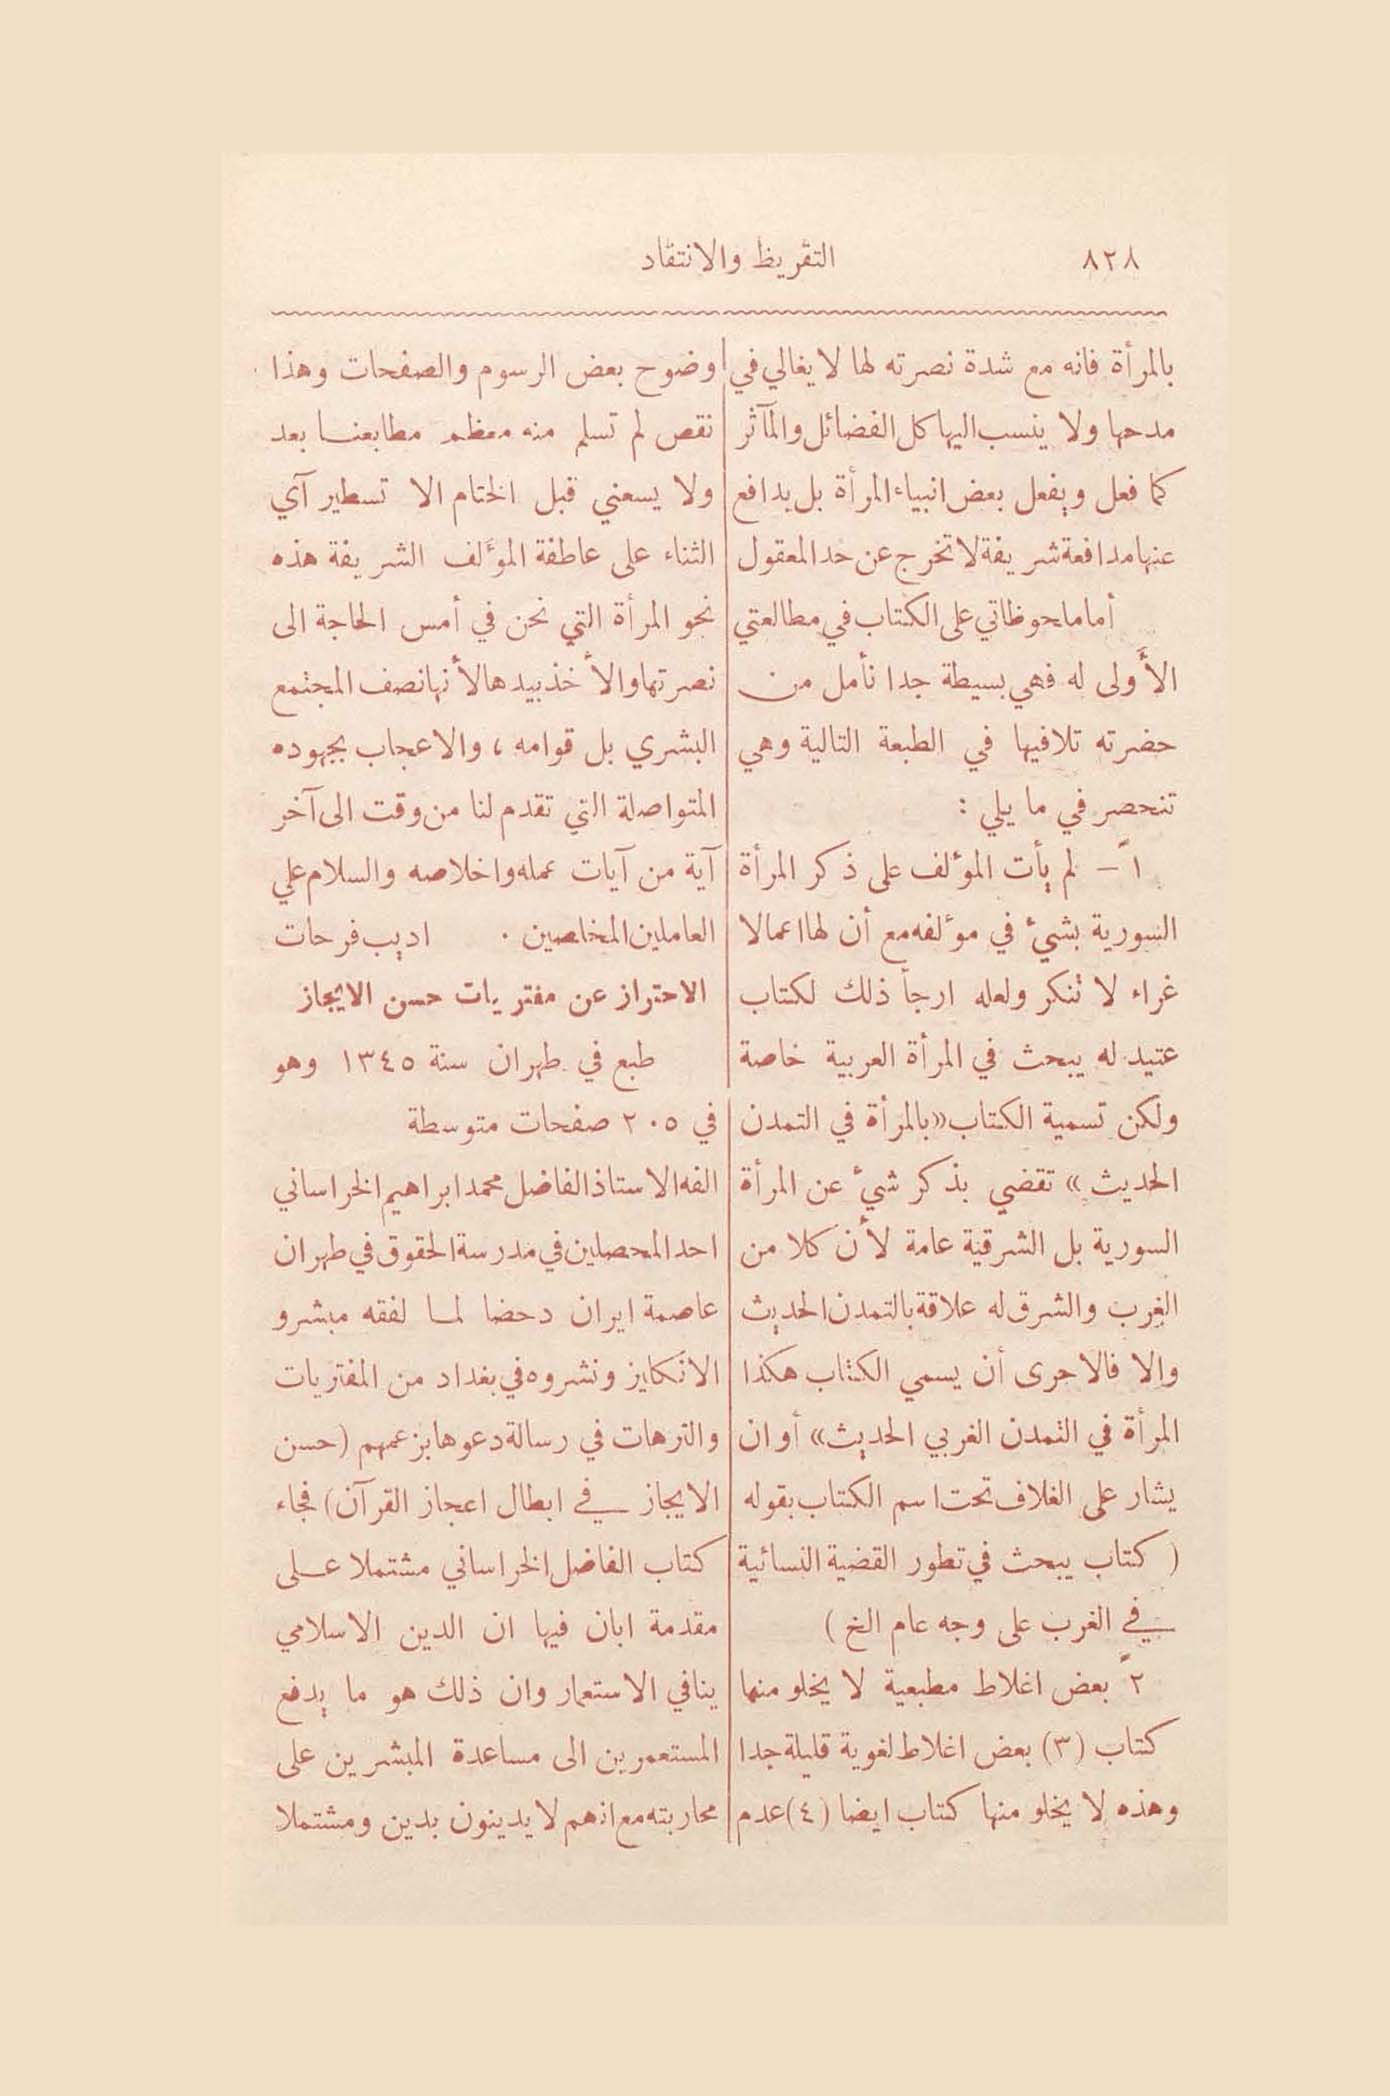 ٨٢٨
التقريظ والانتقاد
بالمرأة فانه مع شدة نصرته لها لا يغالي في
مدحها ولا ينسب اليها كل الفضائل والمآثر
كما فعل ويفعل بعض انبياء المرأة بل يدافع
عنها مدافعة شريفة لا تخرج عن حد المعقول
أما ملحوظاتي على الكتاب في مطالعتي
الأولى له فهي بسيطة جدا نأمل من
حضرته تلافيها في الطبعة التالية وهي
تنحصر في ما يلي :
١ً – لم يأت المؤلف على ذكر المرأة
السورية بشيء في مؤلفه مع أن لها اعمالا
غراء لا تنكر ولعله ارجأ ذلك لكتاب
عتيد له يبحث في المرأة العربية خاصة
ولكن تسمية الكتاب «بالمرأة في التمدن
الحديث» تقضي بذكر شيء عن المرأة
السورية بل الشرقية عامة لأن كلا من
الغرب والشرق له علاقة بالتمدن الحديث
والا فالاحرى أن يسمي الكتاب هكذا
المرأة في التمدن الغربي الحديث» أو ان
يشار على الغلاف تحت اسم الكتاب بقوله
( كتاب يبحث في تطور القضية النسائية
في الغرب على وجه عام الخ )
٢ً بعض اغلاط مطبعية لا يخلو منها
كتاب (٣) بعض اغلاط لغوية قليلة جدا
وهذه لا يخلو منها كتاب ايضا (٤) عدم
وضوح بعض الرسوم والصفحات وهذا
نقص لم تسلم منه معظم مطابعنا بعد
ولا يسعني قبل الختام الا تسطير آي
الثناء على عاطفة المؤلف الشريفة هذه
نحو المرأة التي نحن في أمس الحاجة الى
نصرتها والأخذ بيدها لأنها نصف المجتمع
البشري بل قوامه ، والاعجاب بجهوده
المتواصلة التي تقدم لنا من وقت الى آخر
آية من آيات عمله واخلاصه والسلام على
العاملين المخلصين . اديب فرحات
الاحتراز عن مفتريات حسن الايجاز
طبع في طهران سنة ١٣٤٥ وهو
في ٢٠٥ صفحات متوسطة
الفه الاستاذ الفاضل محمد ابراهيم الخراساني
احد المحصلين في مدرسة الحقوق في طهران
عاصمة ايران دحضا لما لفقه مبشرو
الانكليز ونشروه في بغداد من المفتريات
والترهات في رسالة دعوها بزعمهم (حسن
الايجاز في ابطال اعجاز القرآن) فجاء
كتاب الفاضل الخراساني مشتملا على
مقدمة ابان فيها ان الدين الاسلامي
ينافي الاستعمار وان ذلك هو ما يدفع
المستعمرين الى مساعدة المبشرين على
محاربته مع انهم لا يدينون بدين ومشتملا